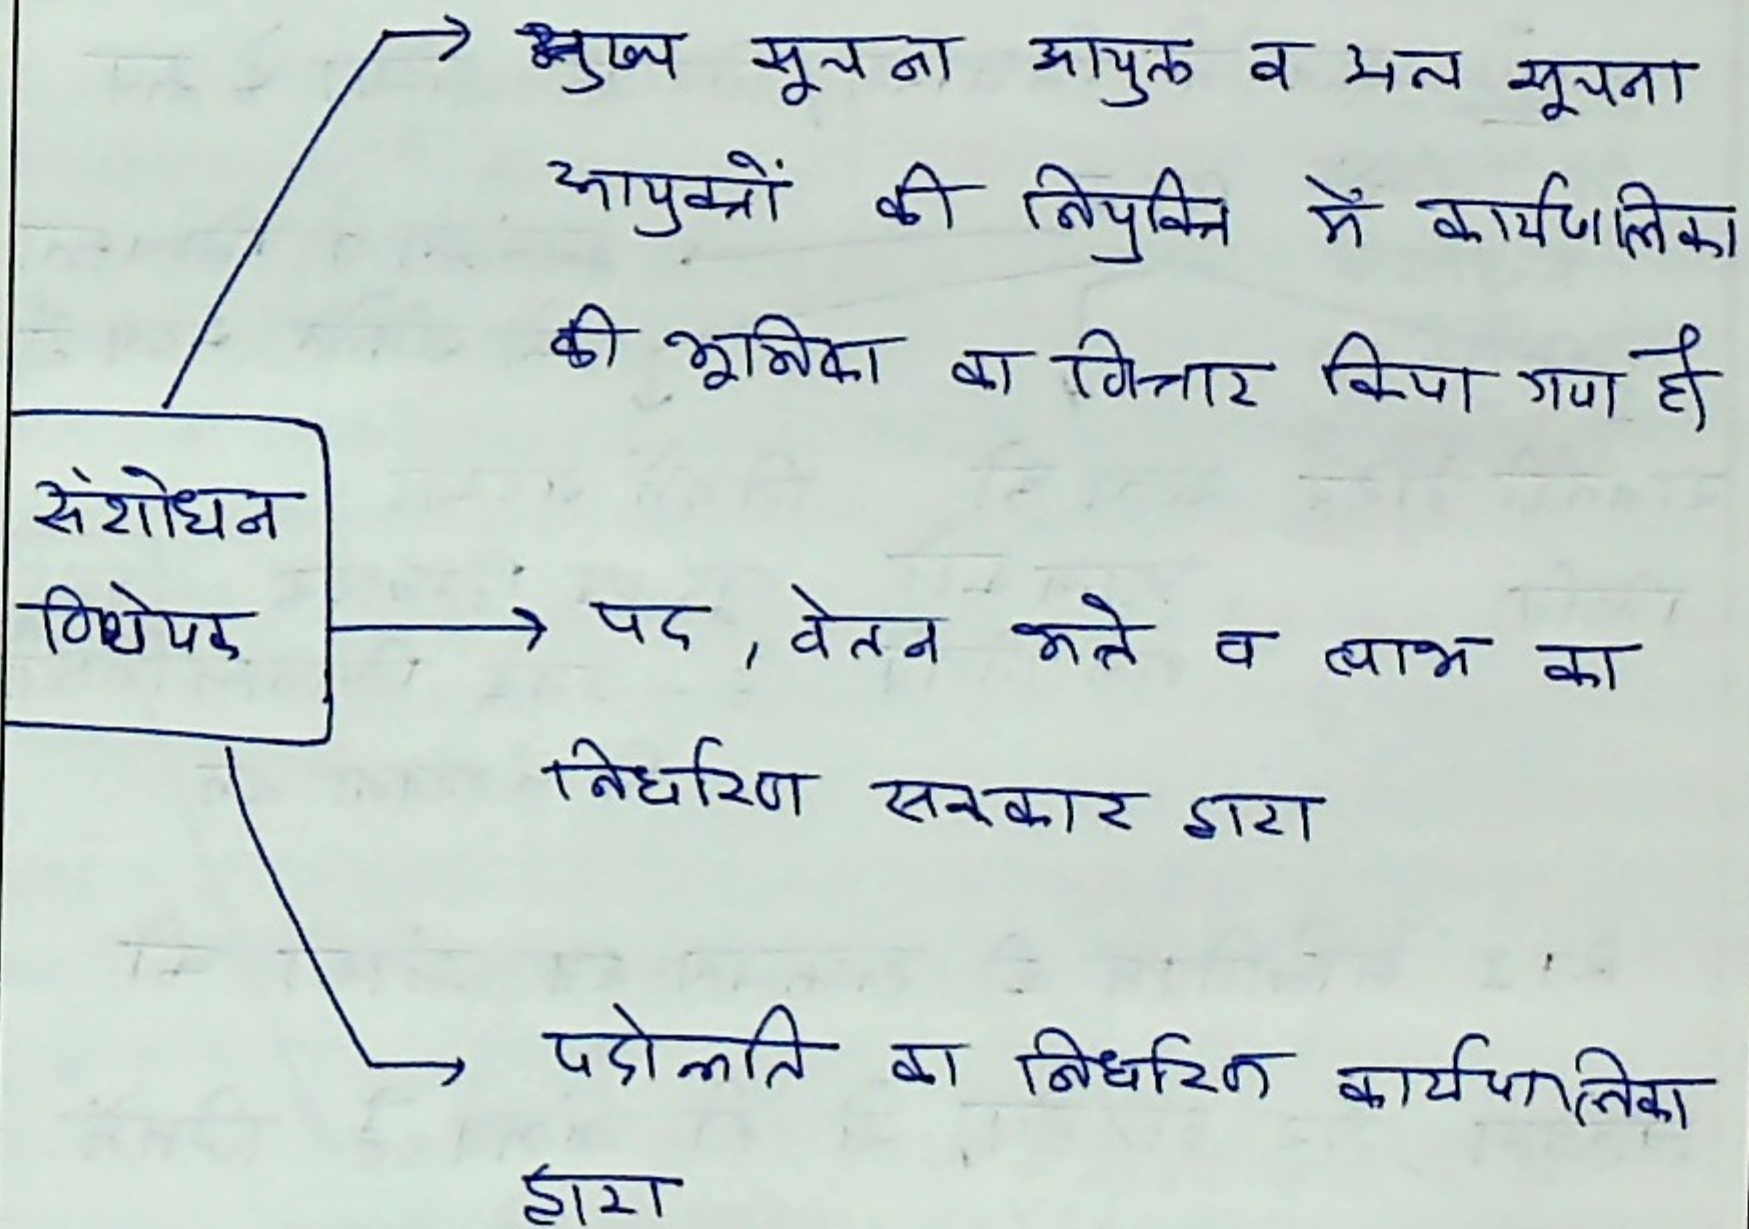 मुख्य सूचना आयुक्त व अन्य सूचना
आयुक्तों की नियुक्ति में कार्यपालिका
की भूमिका का विस्तार किया गया है।
संशोधन
विधेयक
पद, वेतन भत्ते व लाभ का
निर्धारण सरकार द्वारा
पदोन्नति का निर्धारण कार्यपालिका
द्वारा